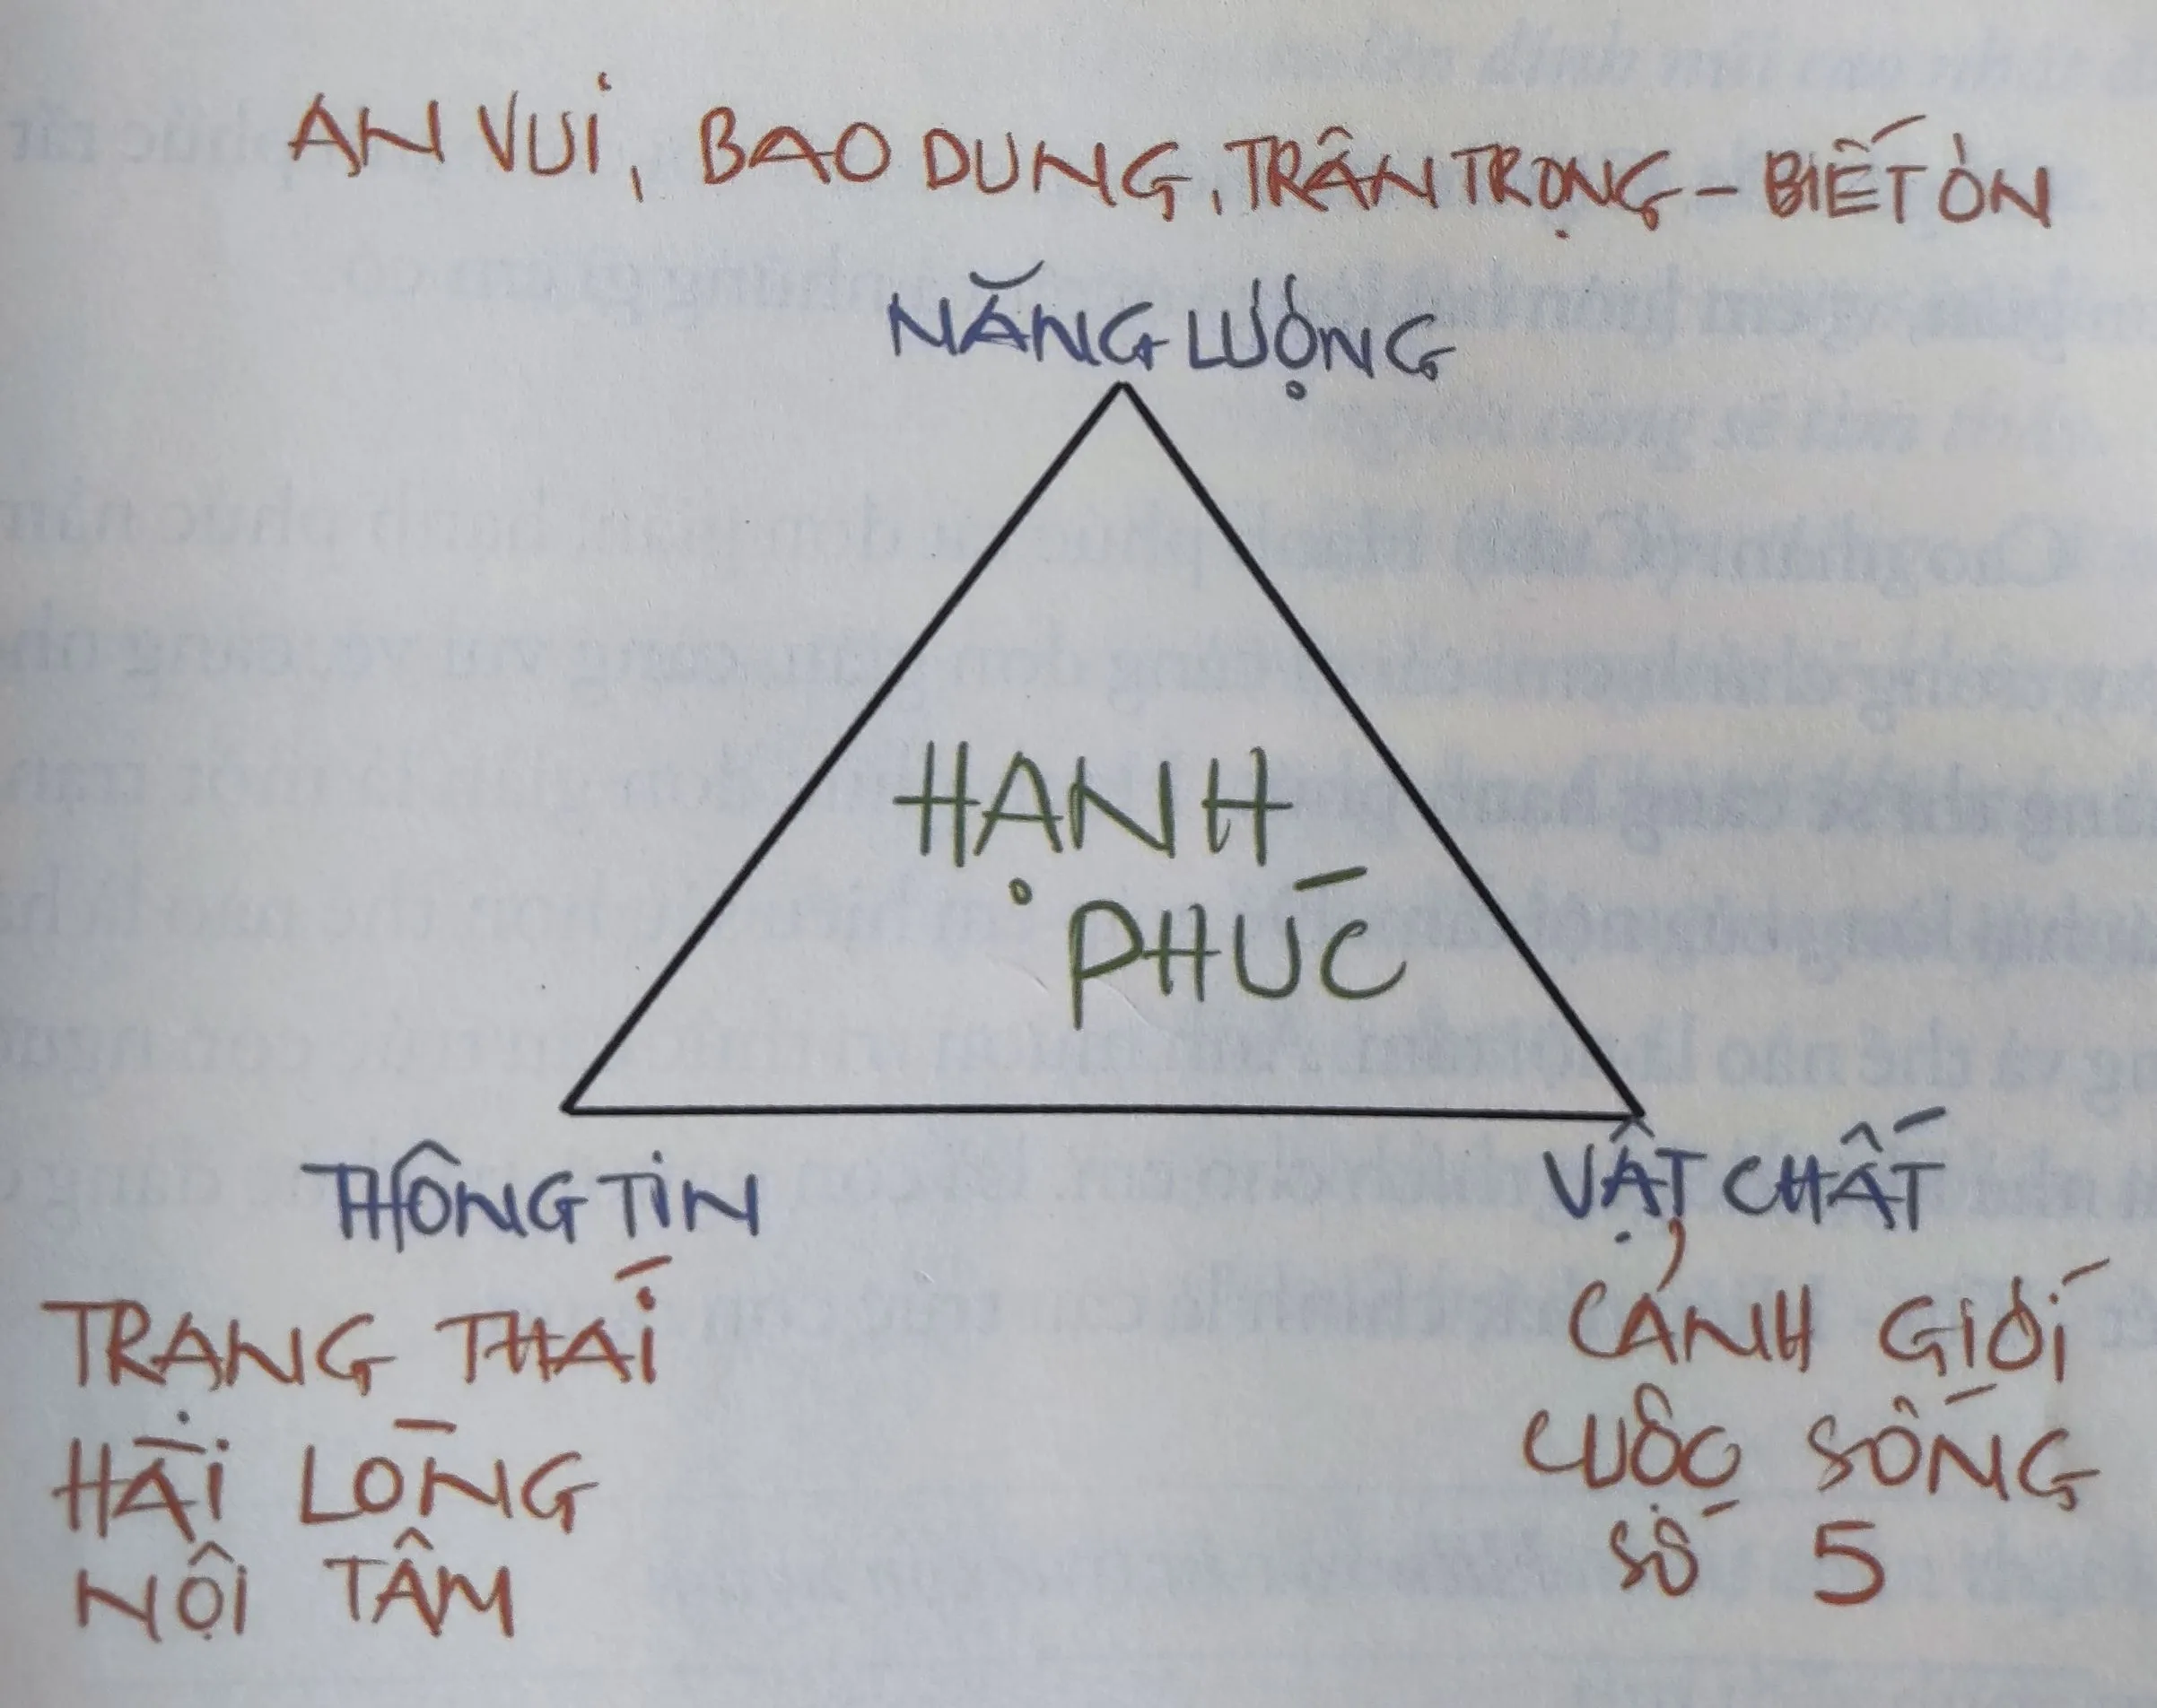 AN VUI, BAO DUNG, TRÂN TRỌNG - BIẾT ƠN
NĂNG LƯỢNG
HẠNH
PHÚC
THÔNG TIN
VẬT CHẤT
TRẠNG THÁI
HÀI LÒNG
NỘI TÂM
CẢNH GIỚI
CUỘC SỐNG
SỐ 5